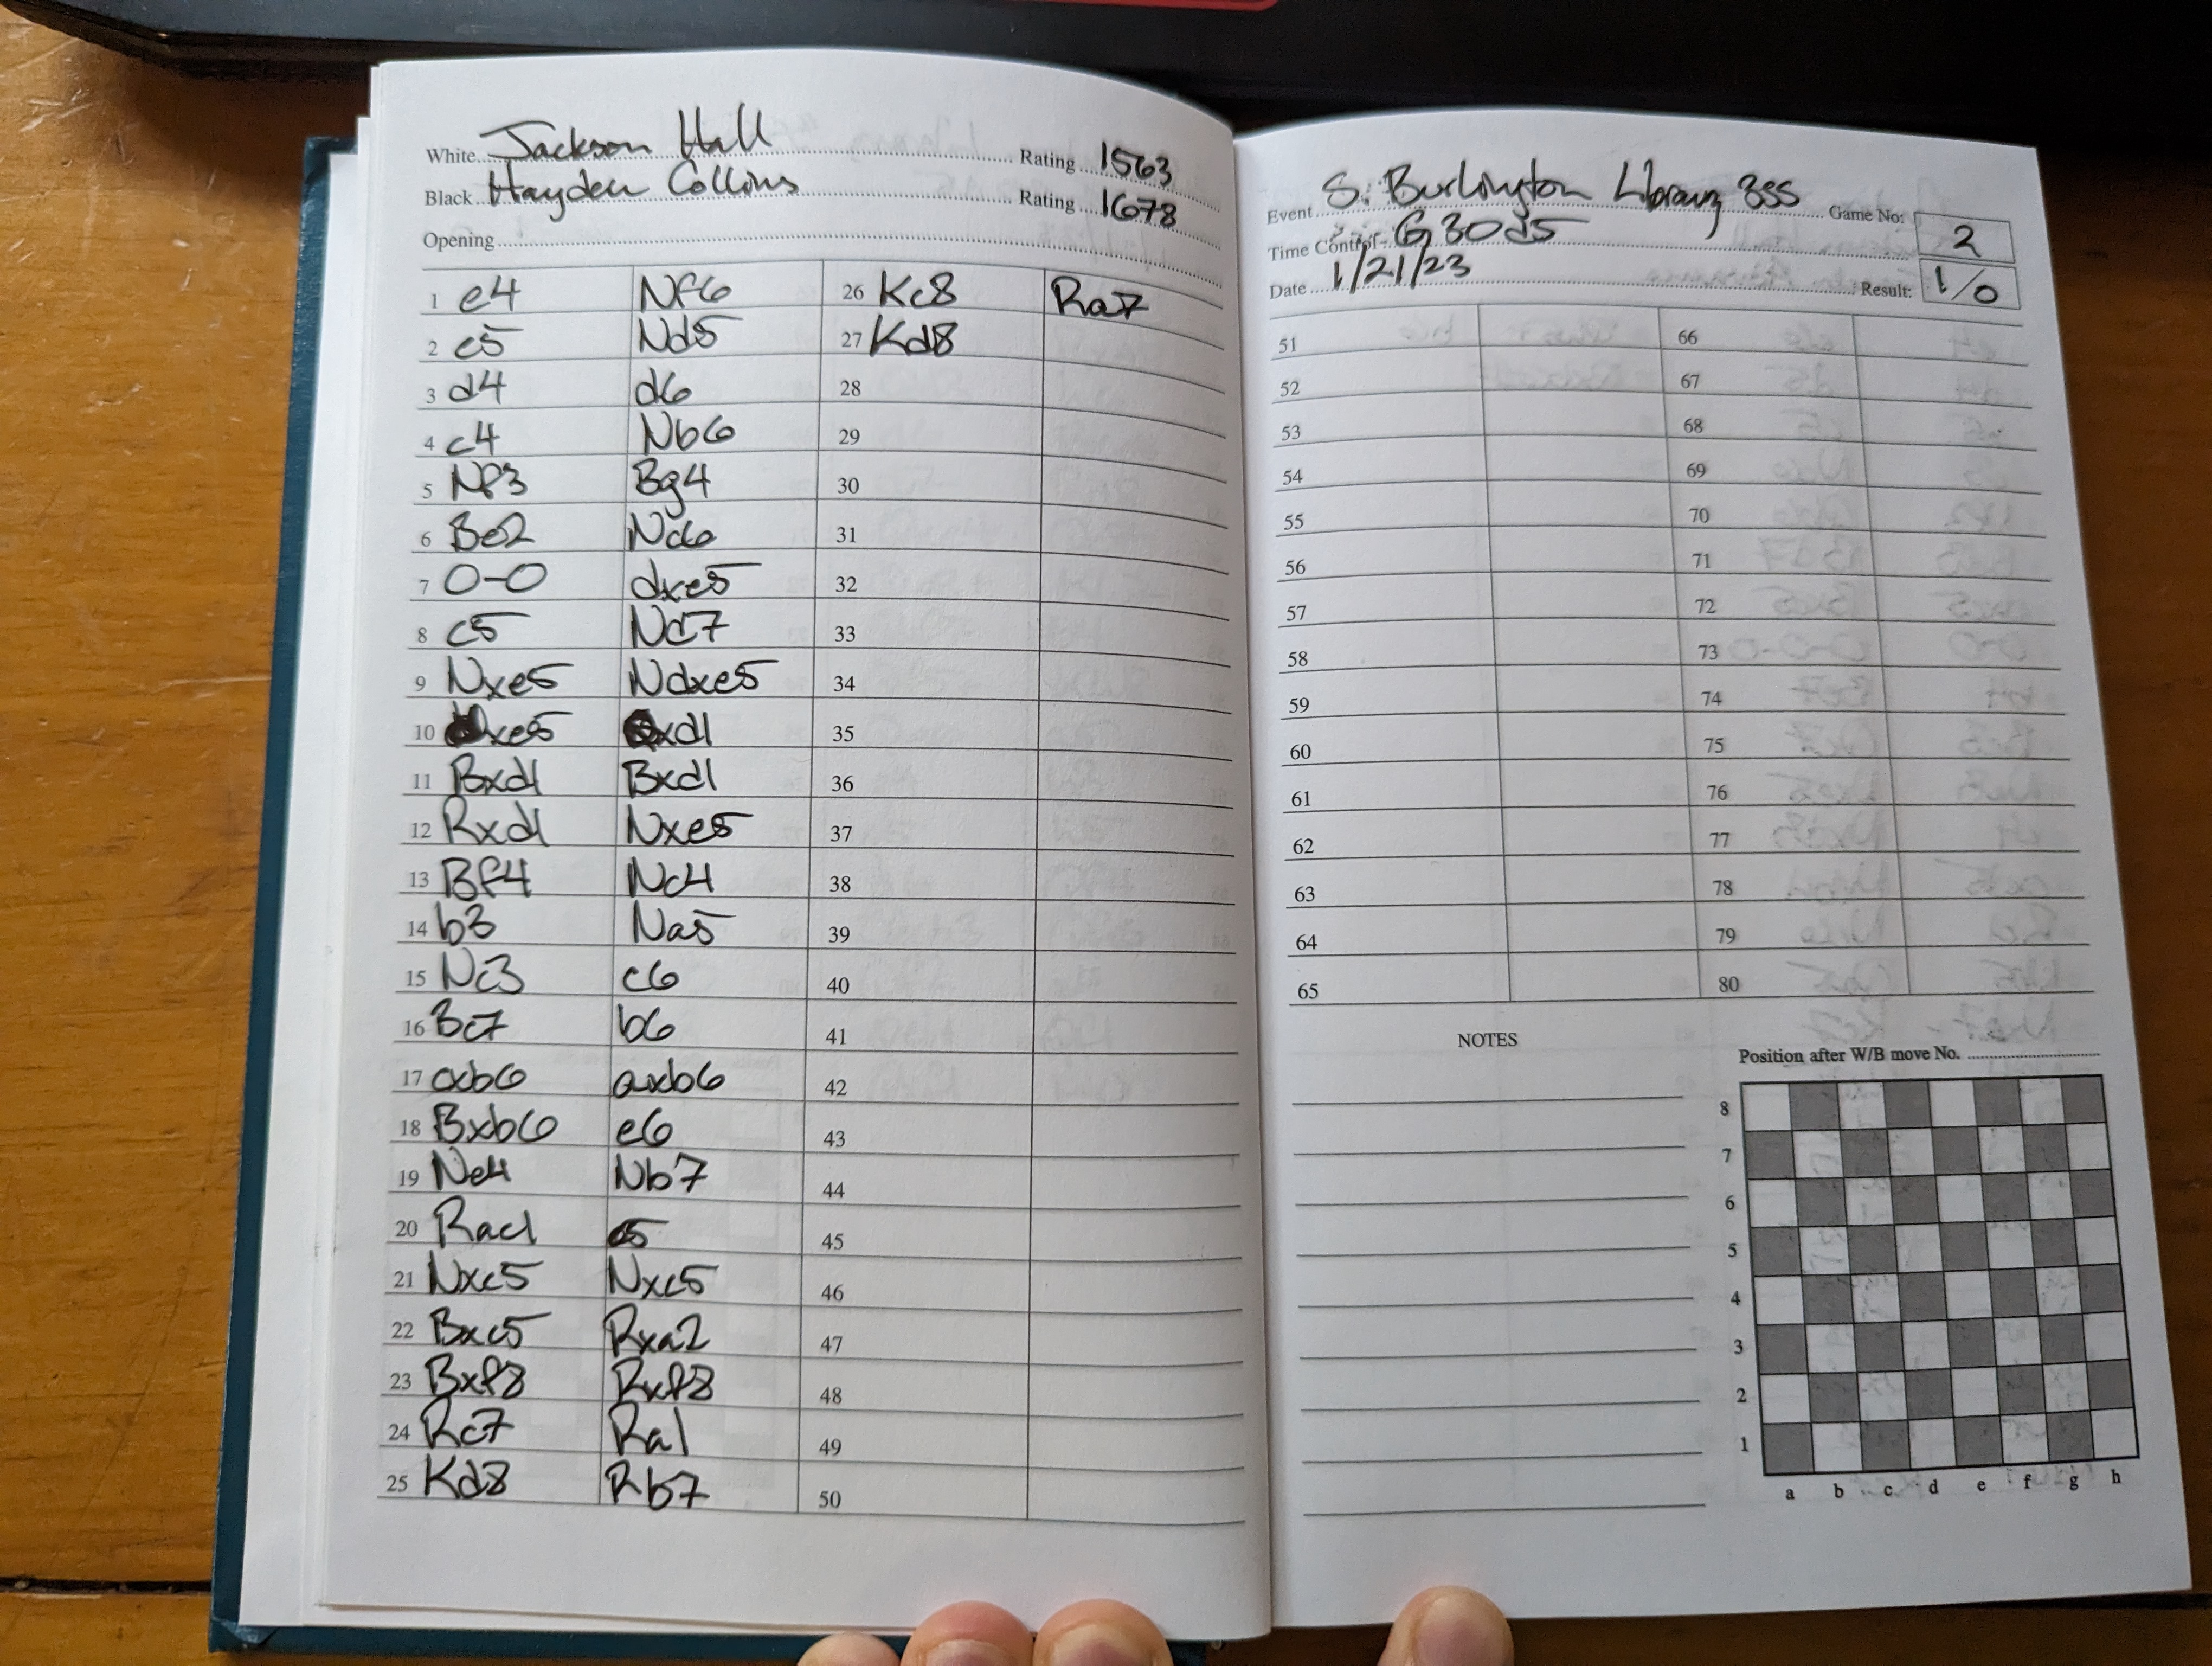 White Jackson Hall Rating 1563
Black Hayden Collins Rating 1678
Opening
1 e4 Nf6 26 Kc8 Ra7
2 e5 Nd5 27 Kd8
3 d4 d6 28
4 c4 Nb6 29
5 Nf3 Bg4 30
6 Be2 Nc6 31
7 O-O dxe5 32
8 c5 Nd7 33
9 Nxe5 Ndxe5 34
10 dxe5 Qxd1 35
11 Bxd1 Bxd1 36
12 Rxd1 Nxe5 37
13 Bf4 Nc4 38
14 b3 Na5 39
15 Nc3 c6 40
16 Bc7 b6 41
17 cxb6 axb6 42
18 Bxb6 e6 43
19 Ne4 Nb7 44
20 Rac1 c5 45
21 Nxc5 Nxc5 46
22 Bxc5 Rxa2 47
23 Bxf8 Rxf8 48
24 Rc7 Ra1 49
25 Kd8 Rb7 50
Event S. Burlington Library 3SS Game No: 2
Time Control G30d5
Date 1/21/23 Result: 1/0
51 66
52 67
53 68
54 69
55 70
56 71
57 72
58 73
59 74
60 75
61 76
62 77
63 78
64 79
65 80
NOTES
Position after W/B move No.
8
7
6
5
4
3
2
1
a b c d e f g h